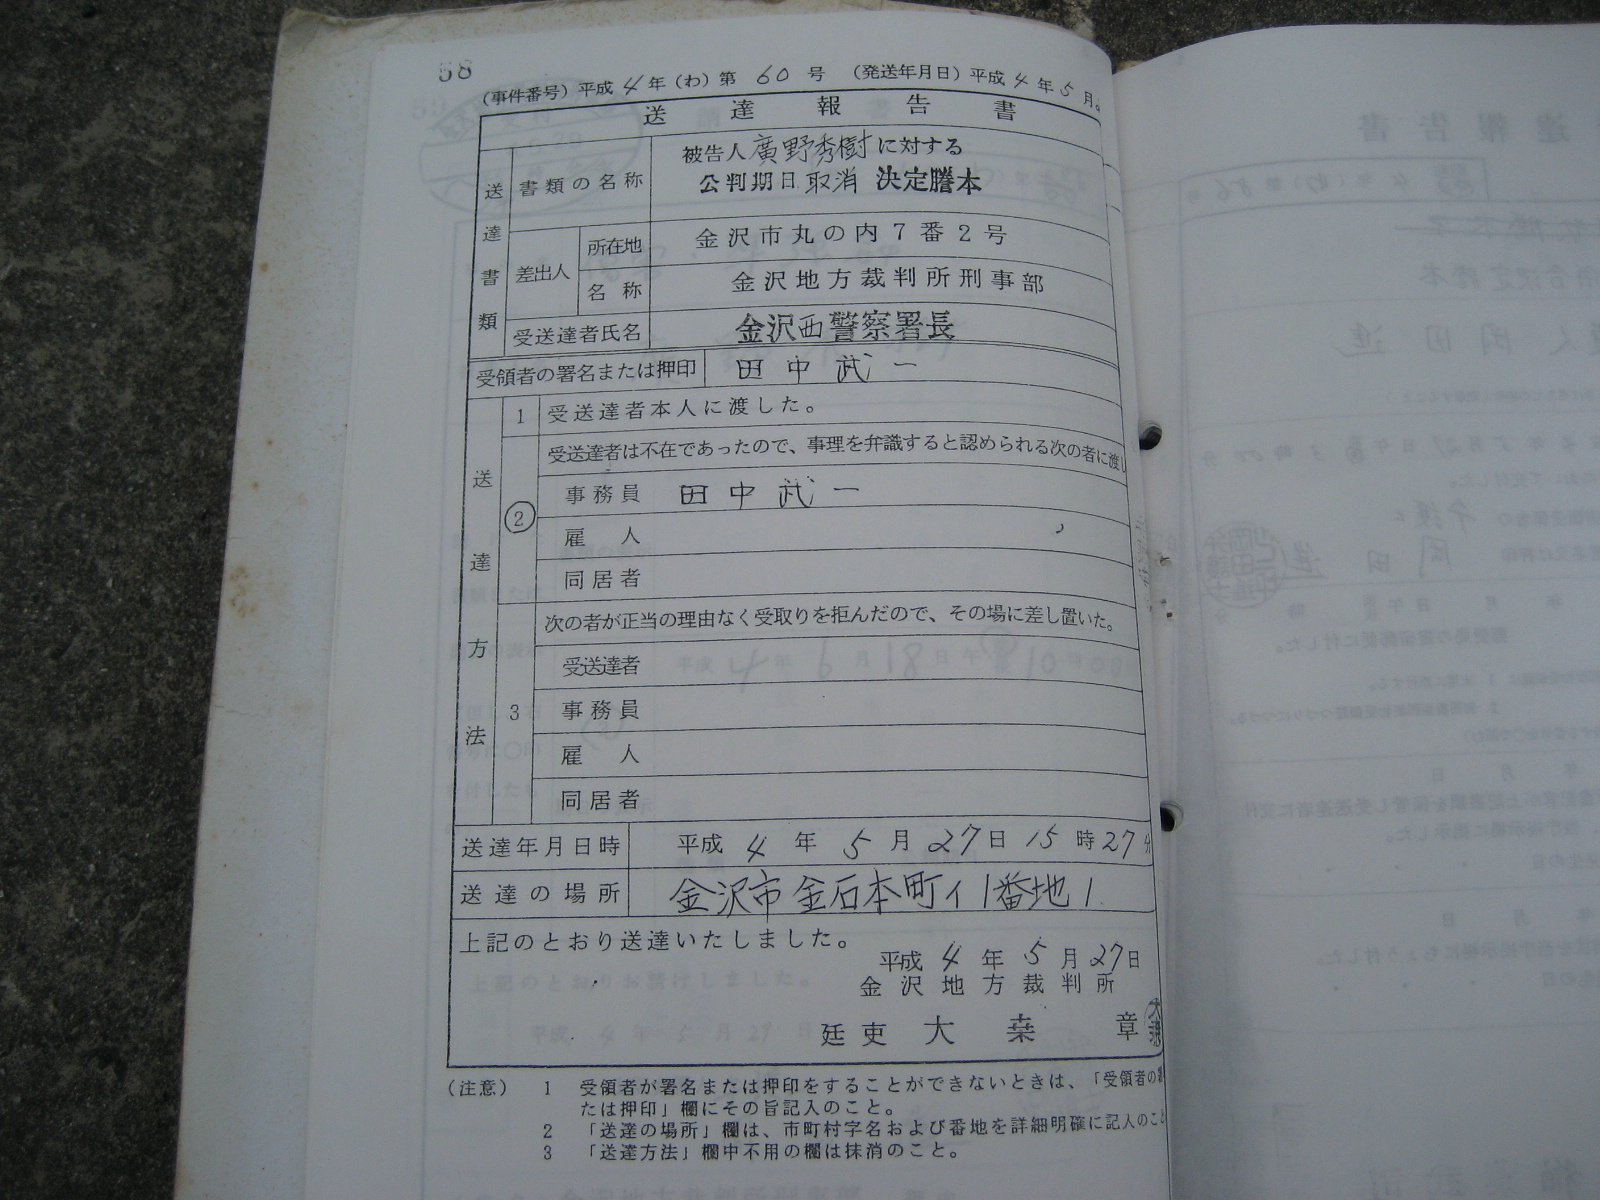 58
(事件番号) 平成 4 年 (わ) 第 60 号 (発送年月日) 平成 4 年 5 月
送達報告書
送達書類
書類の名称
被告人 廣野秀樹 に対する
公判期日 取消 決定謄本
差出人
所在地
金沢市丸の内7番2号
名称
金沢地方裁判所刑事部
受送達者氏名
金沢西警察署長
受領者の署名または押印
田中武一
送達方法
1 受送達者本人に渡した。
2 受送達者は不在であったので、事理を弁識すると認められる次の者に渡し
事務員 田中武一
雇人
同居者
3 次の者が正当の理由なく受取りを拒んだので、その場に差し置いた。
受送達者
事務員
雇人
同居者
送達年月日時
平成 4 年 5 月 27 日 15 時 27 分
送達の場所
金沢市金石本町イ1番地1
上記のとおり送達いたしました。
平成 4 年 5 月 27 日
金沢地方裁判所
廷吏 大桒 章
(注意) 1 受領者が署名または押印をすることができないときは、「受領者の署
たは押印」欄にその旨記入のこと。
2 「送達の場所」欄は、市町村字名および番地を詳細明確に記入のこと
3 「送達方法」欄中不用の欄は抹消のこと。